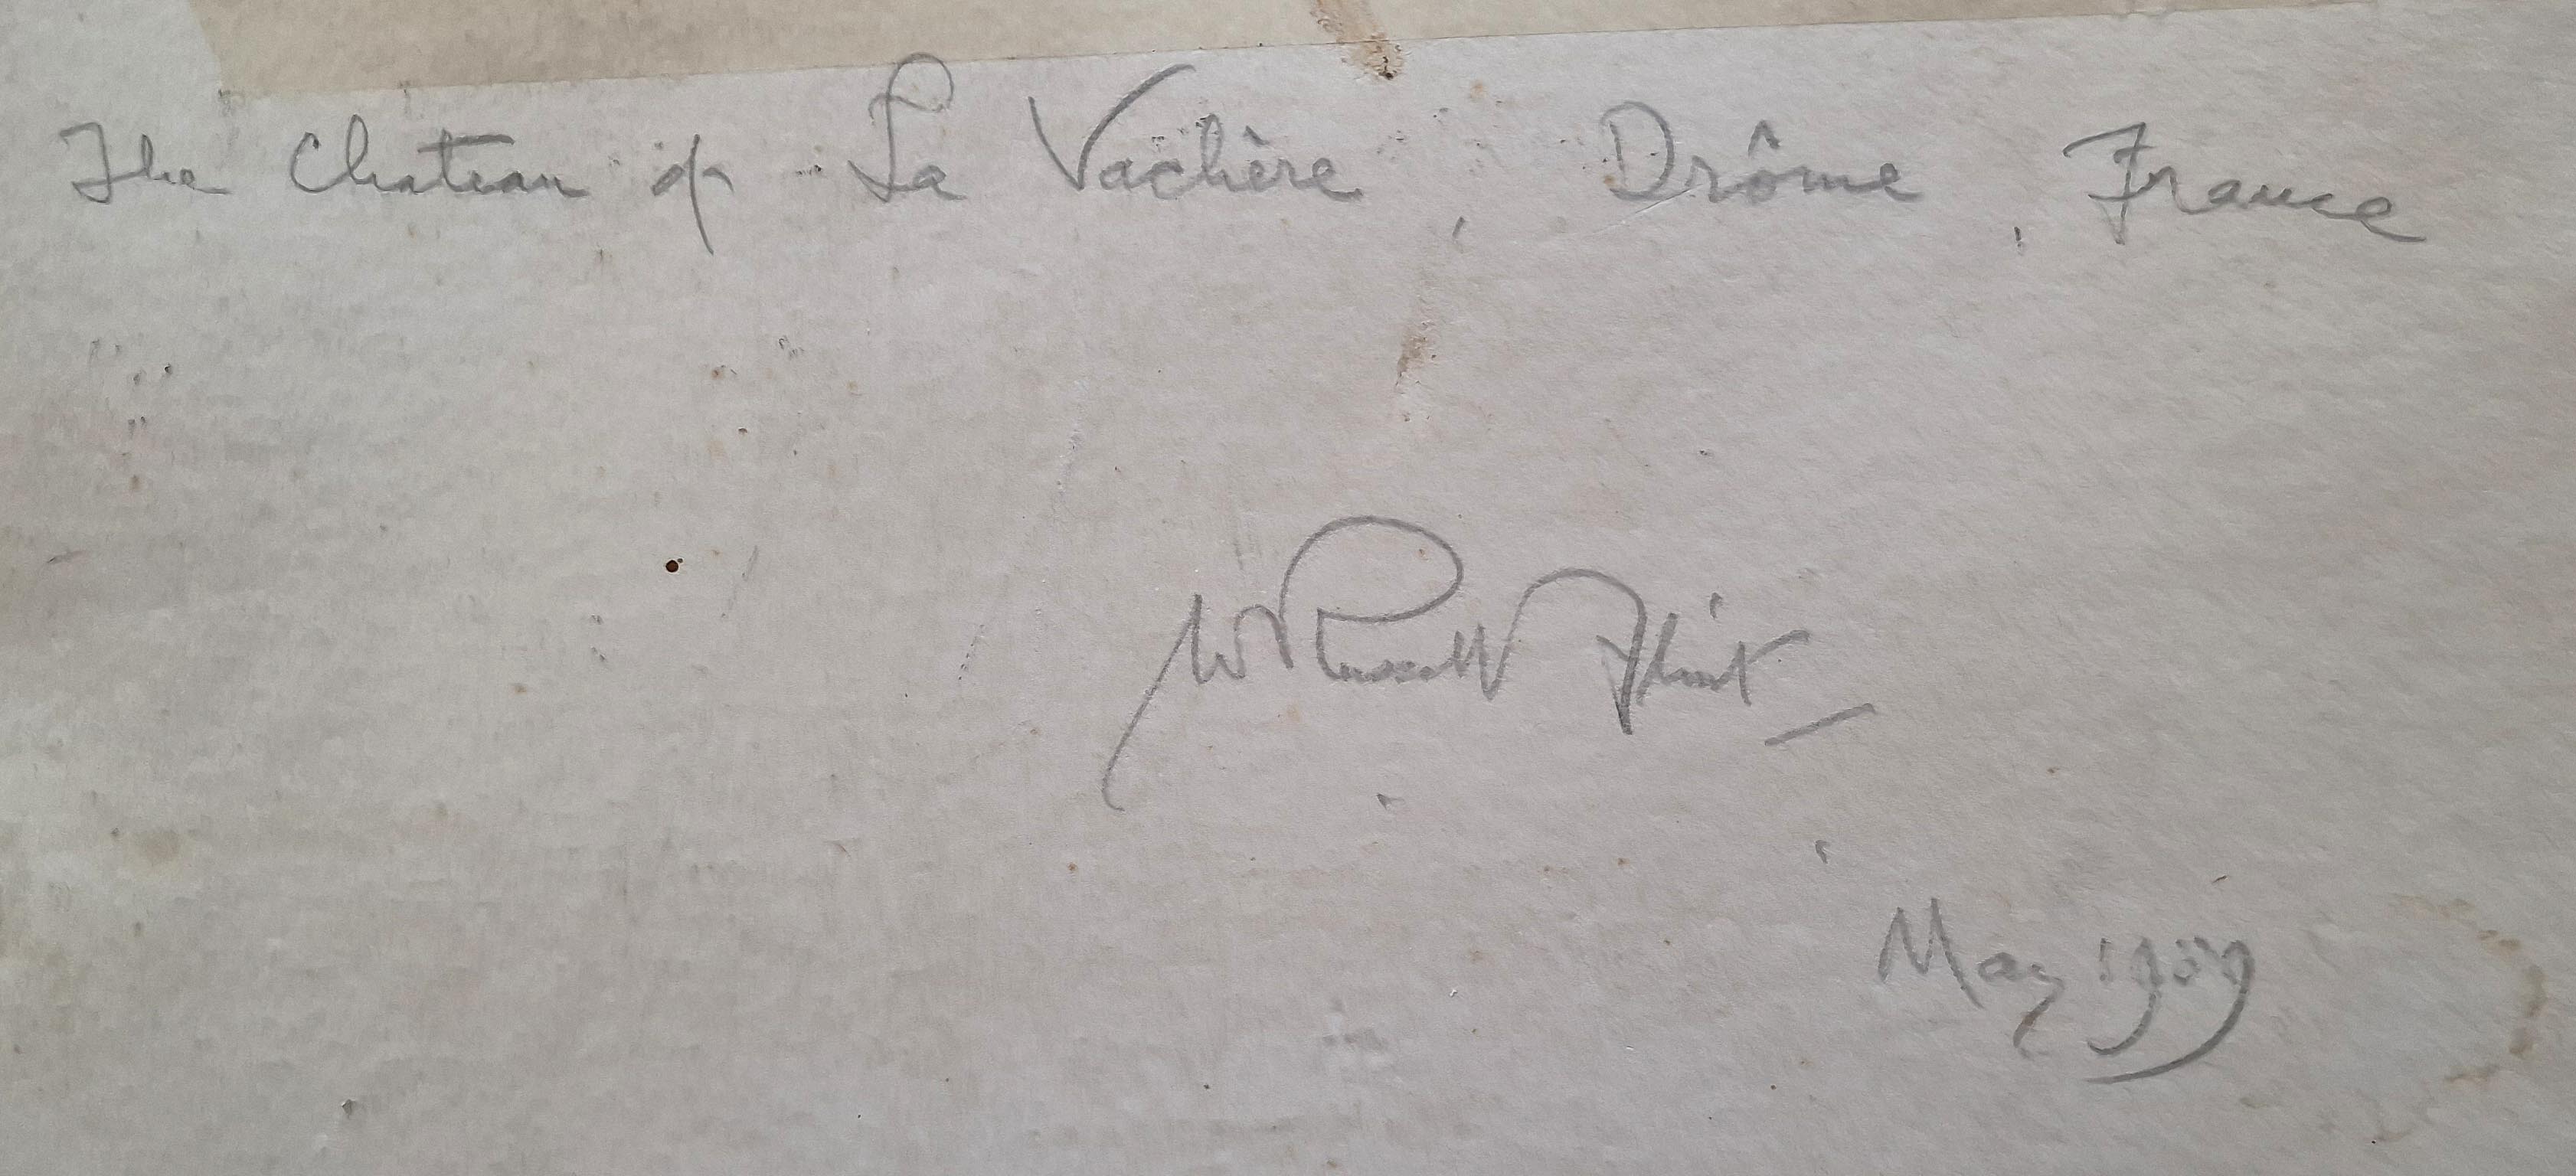 The Chateau of La Vachère, Drôme, France
W Russell Flint
May 1959